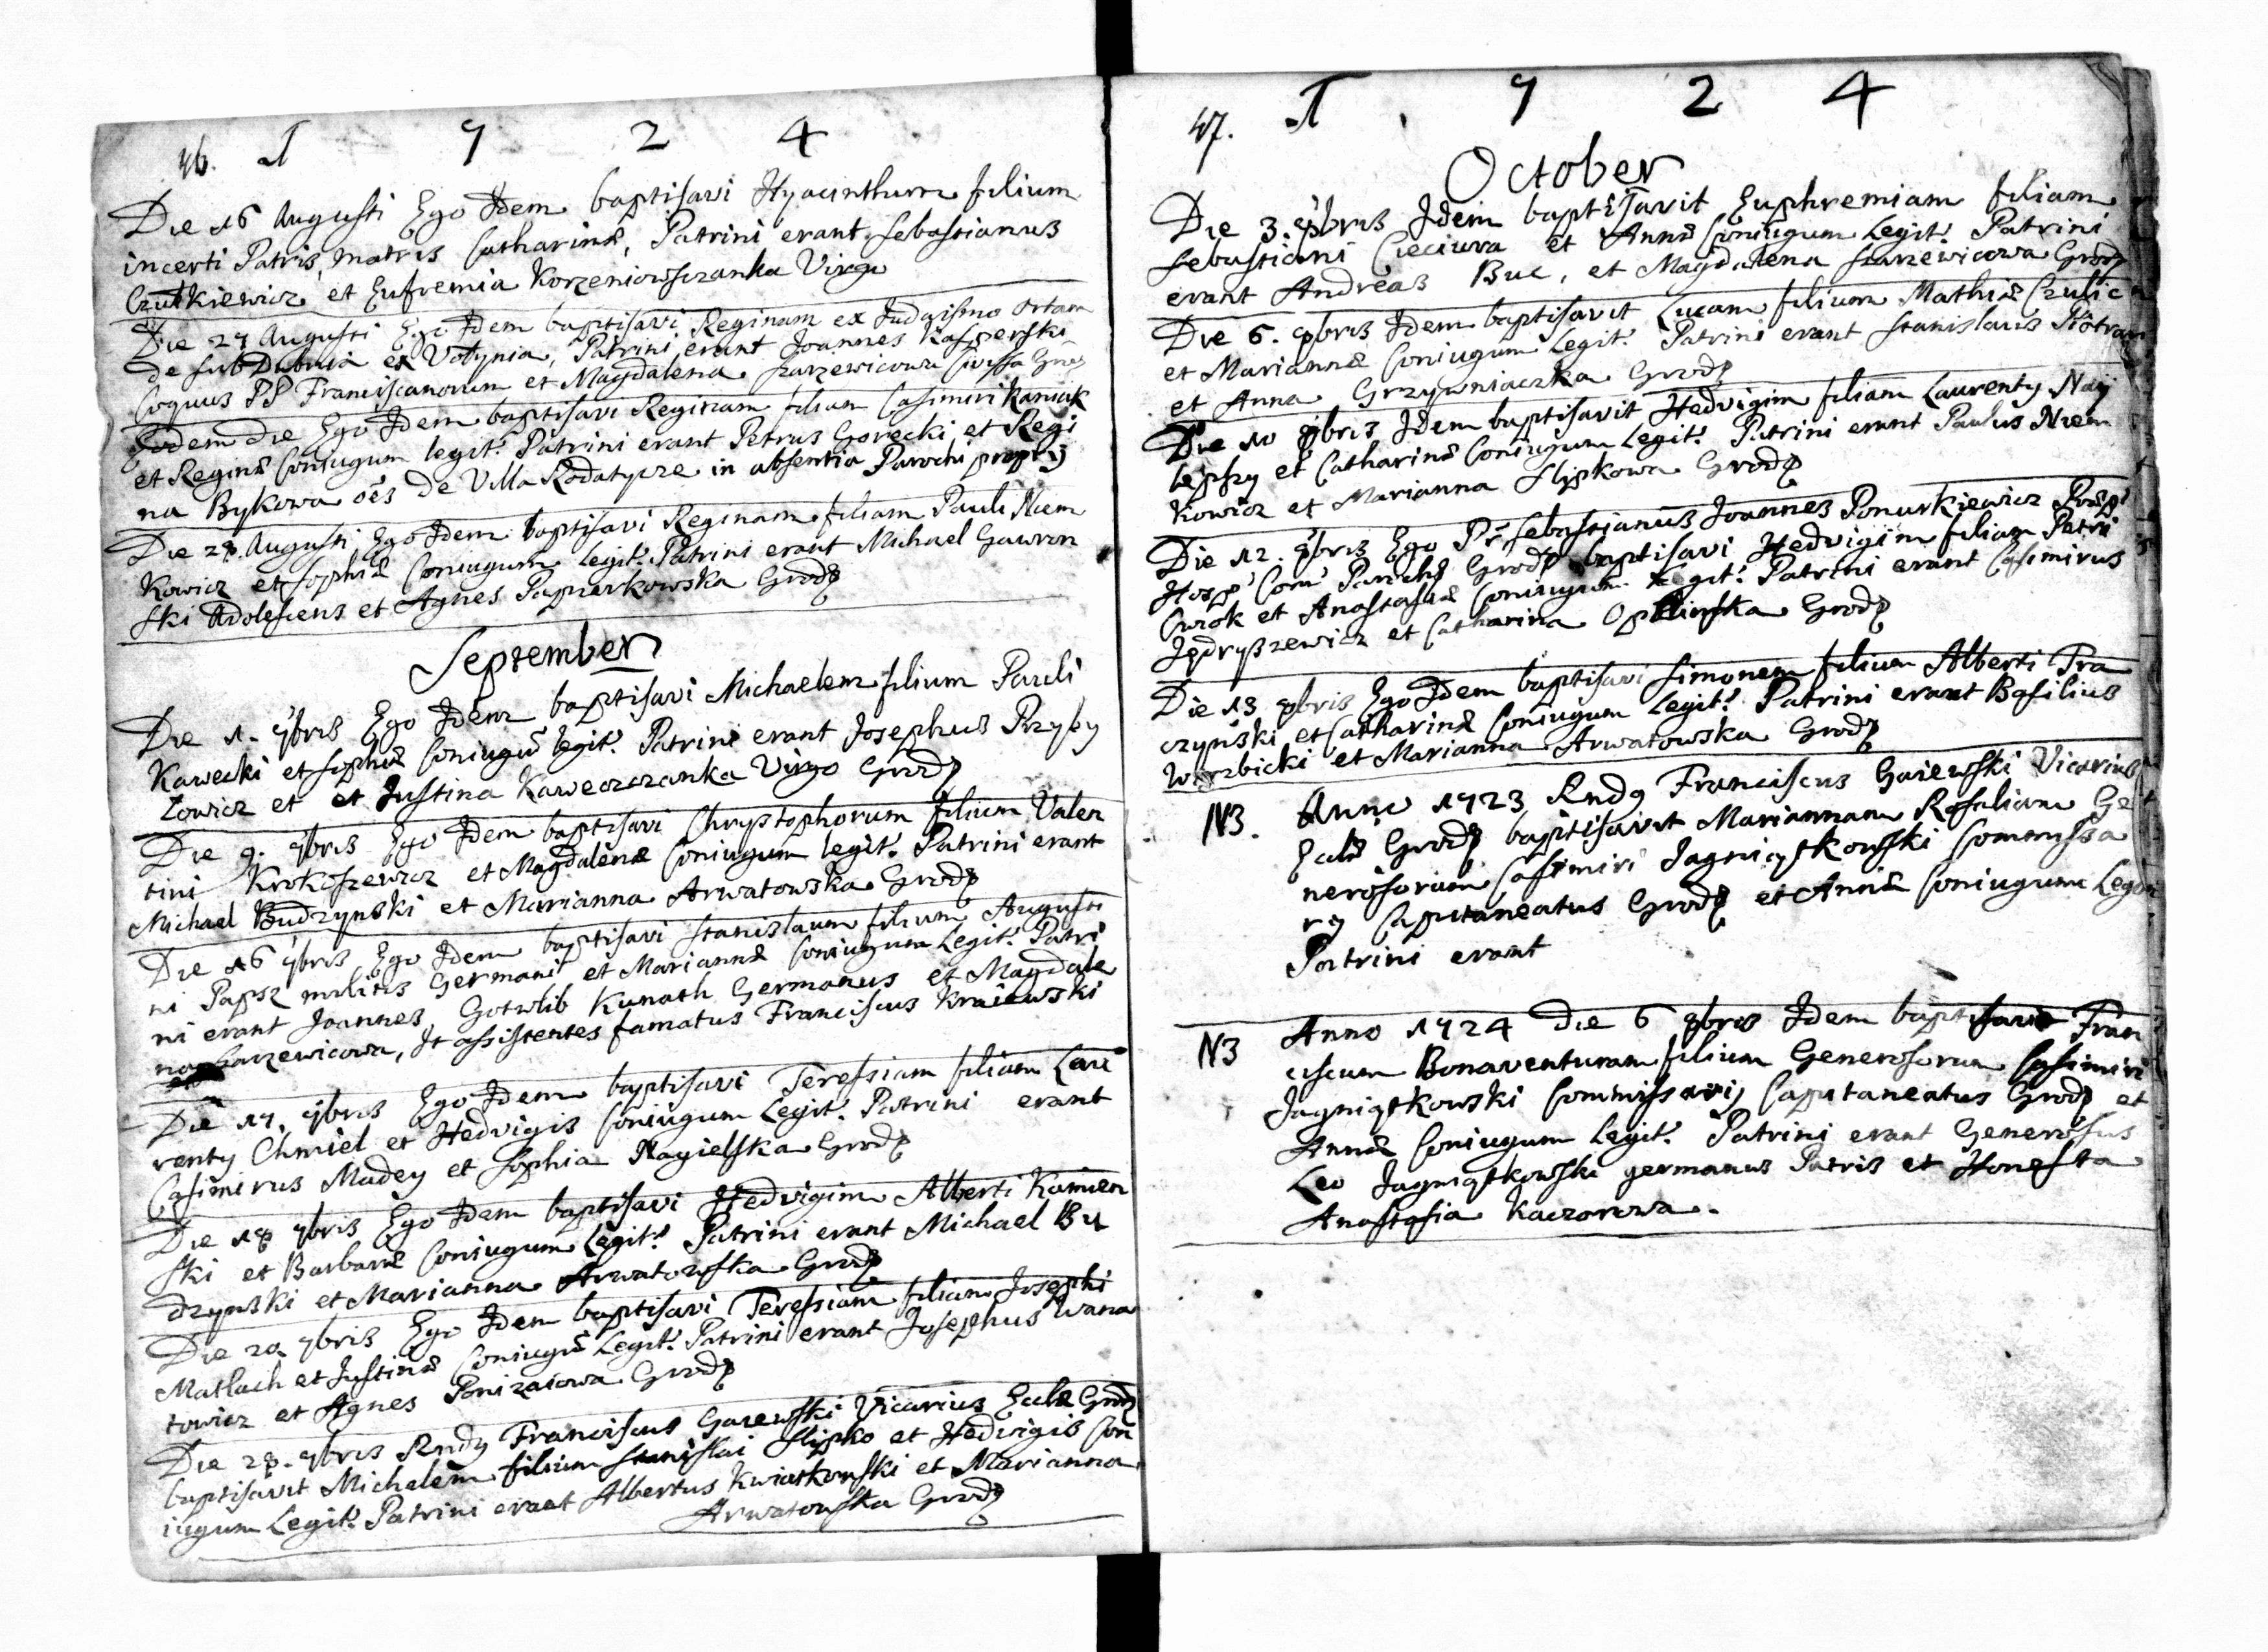 46. 1 7 2 4
Die 16 Augusti Ego Idem baptisavi Hyacinthum filium
incerti Patris, matris Catharinæ, Patrini erant Sebastianus
Czutkiewicz et Eufremia Korzeniowszanka Virgo
Die 27 Augusti Ego Idem baptisavi Reginam ex Judaismo ortam
de sub Dubnia ex Volynia, Patrini erant Joannes Kasperski
Coquus PP Franciscanorum et Magdalena Szarzewicowa
Eodem die Ego Idem baptisavi Reginam filiam Casimiri Kaniuk
et Reginæ Coniugum legit: Patrini erant Petrus Gorecki et Regi
na Bykowa oēs de Villa Rodatycze in absentia Parochi proprij
Die 28. Augusti Ego Idem baptisavi Reginam filiam Pauli Niem
kowicz et Sophiæ Coniugum legit: Patrini erant Michael Gawron
ski Adolescens et Agnes Papierkowska Grod:
September
Die 1. 7bris Ego Idem baptisavi Michaelem filium Pauli
Kawecki et Sophiæ Coniugū legit: Patrini erant Josephus Przyby
Lowicz et et Justina Kaweczczanka Virgo Grod:
Die 9. 7bris Ego Idem baptisavi Chrystophorum filium Valen
tini Krokoszewicz et Magdalenæ Coniugum legit: Patrini erant
Michael Budzynski et Marianna Arwatowska Grod:
Die 16 7bris Ego Idem baptisavi Stanislaum filium Augusti
ni Papsz militis Germani et Mariannæ Coniugum Legit: Patri
ni erant Joannes Gotwlib Kunath Germanus et Magdale
na Szarzewicowa, It assistentes famatus Franciscus Kraiewski
Die 17. 7bris Ego Idem baptisavi Teressiam filiam Lau
renty Chmiel et Hedvigis Coniugum Legit: Patrini erant
Casimirus Madey et Sophia Nagielska Grod:
Die 18 7bris Ego Idem baptisavi Hedvigim Alberti Kamien
ski et Barbaræ Coniugum Legit: Patrini erant Michael Bu
dzynski et Marianna Arwatowska Grod:
Die 20 7bris Ego Idem baptisavi Teressiam filiam Josephi
Matlach et Justinæ Coniugū Legit: Patrini erant Josephus Wana
towicz et Agnes Ponizaiowa Grod:
Die 28. 7bris Rndg Franciscus Gaiewski Vicarius Eccle Grod:
baptisavit Michaelem filium Stanislai Slipko et Hedvigis Con
iugum Legit: Patrini erant Albertus Kwiatkowski et Marianna
Arwatowska Grod:
47. 1 7 2 4
October
Die 3. 8bris Idem baptisavit Euphremiam filiam
Sebastiani Cieciura et Annæ Coniugum Legit: Patrini
erant Andreas Buc, et Magdalena Szarzewicowa Grod:
Die 6. 8bris Idem baptisavit Lucam filium Mathiæ
et Mariannæ Coniugum Legit: Patrini erant Stanislaus
et Anna Grzywniaczka Grod:
Die 10 8bris Idem baptisavit Hedvigim filiam Laurenty Nay
lepszy et Catharinæ Coniugum Legit: Patrini erant Paulus Niem
kowicz et Marianna Slipkowa Grod:
Die 12. 8bris Ego Pr Sebastianus Joannes Ponurkiewicz
Hosp: Com: Grod: baptisavi Hedvigim filiam Petri
Cwok et Anastasiæ Coniugum Legit: Patrini erant Casimirus
Jędryszewicz et Catharina Opalinska Grod:
Die 13 8bris Ego Idem baptisavi Simonem filium Alberti Tra
czyński et Catharinæ Coniugum Legit: Patrini erant Basilius
Wierzbicki et Marianna Arwatowska Grod:
N3. Anno 1723 Rndg Franciscus Gaiewski Vicarius
Eccle Grod: baptisavit Mariannam Rosaliam Ge
nerosorum Casimiri Jagniątkowski Commissa
rij Capitaneatus Grod: et Annæ Coniugum Legit
Patrini erant
N3 Anno 1724 Die 6 8bris Idem baptisavit Fran
ciscum Bonaventuram filium Generosorum Casimiri
Jagniątkowski Commissarij Capitaneatus Grod: et
Annæ Coniugum Legit: Patrini erant Generosus
Leo Jagniątkowski germanus Patris et Honesta
Anastasia Kaczorowa.